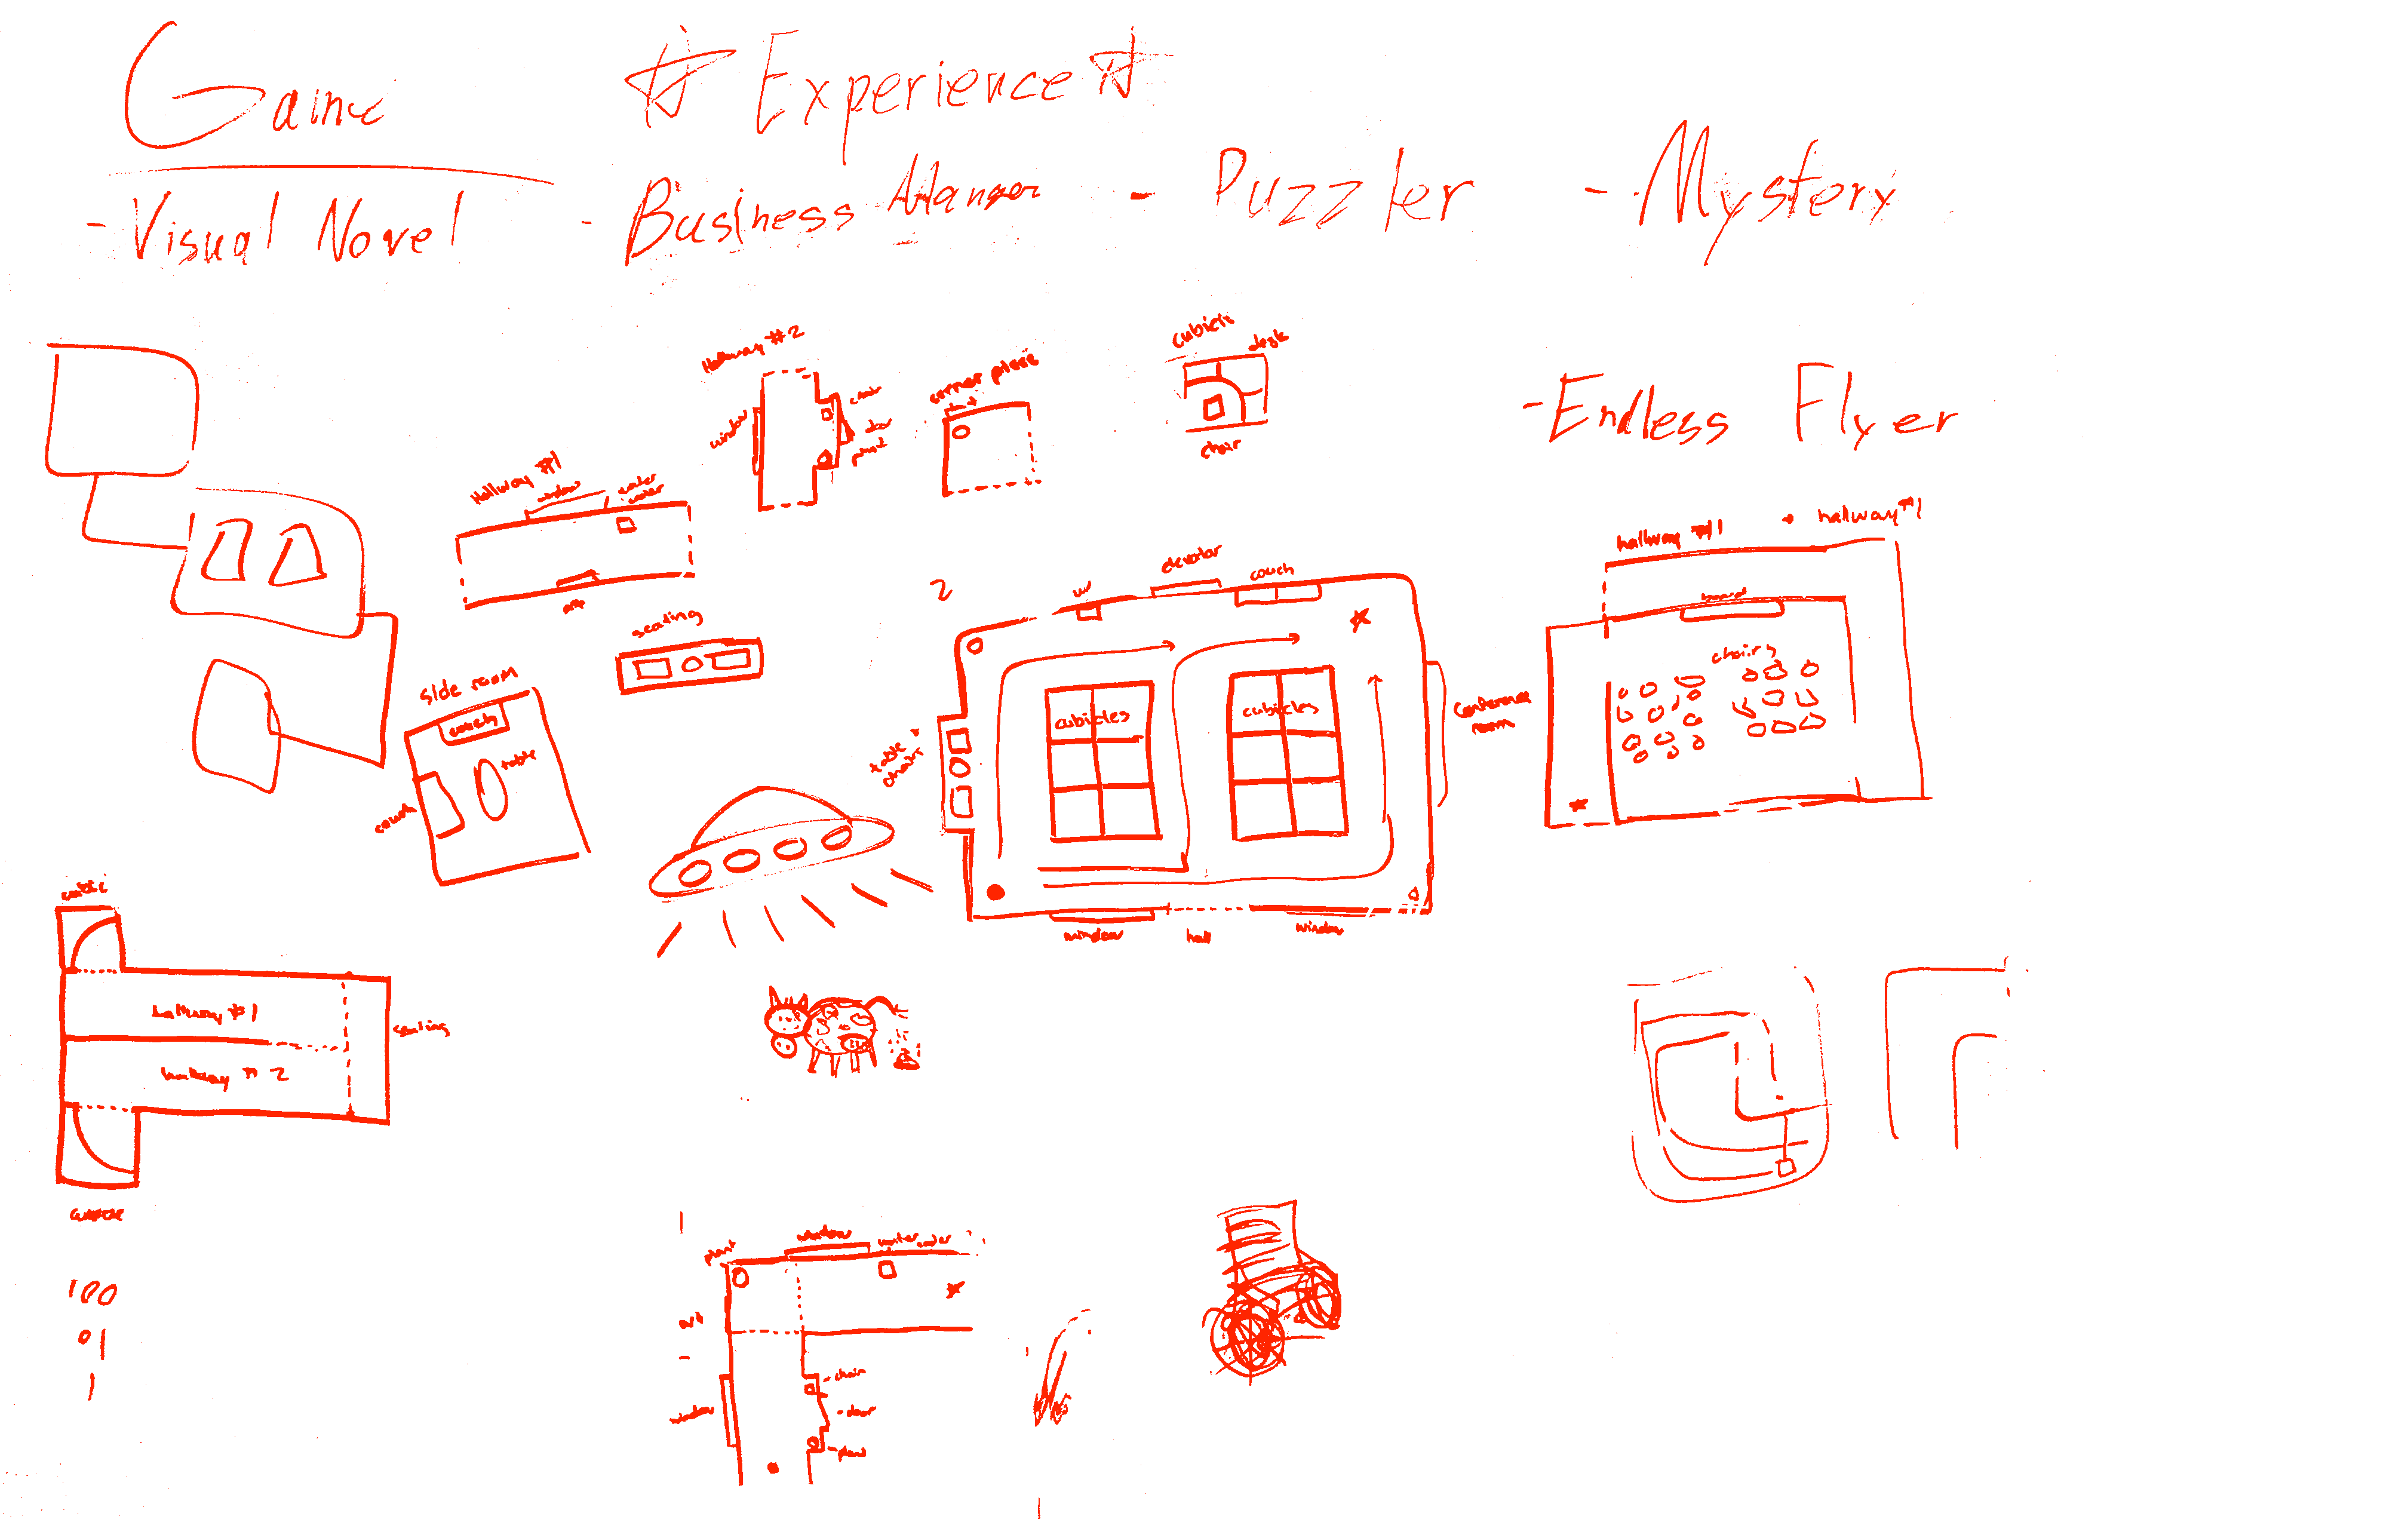 Game ☆ Experience ☆
- Visual Novel - Business Manger - Puzzler - Mystery
- Endless Flyer
Hallway #2
window
chair
door
plant
corner piece
cubicle
desk
chair
Hallway #1
window
water
cooler
seating
side room
couch
table
couch
2
W
elevator
couch
table +
chairs
cubicles
cubicles
Conference
room
window
hall
window
hallway #1
hallway #1
board
chairs
hallway #1
hallway # 2
seating
cubicle
100
01
1
1
plant
window
water cooler
window
- chair
- door
- plant